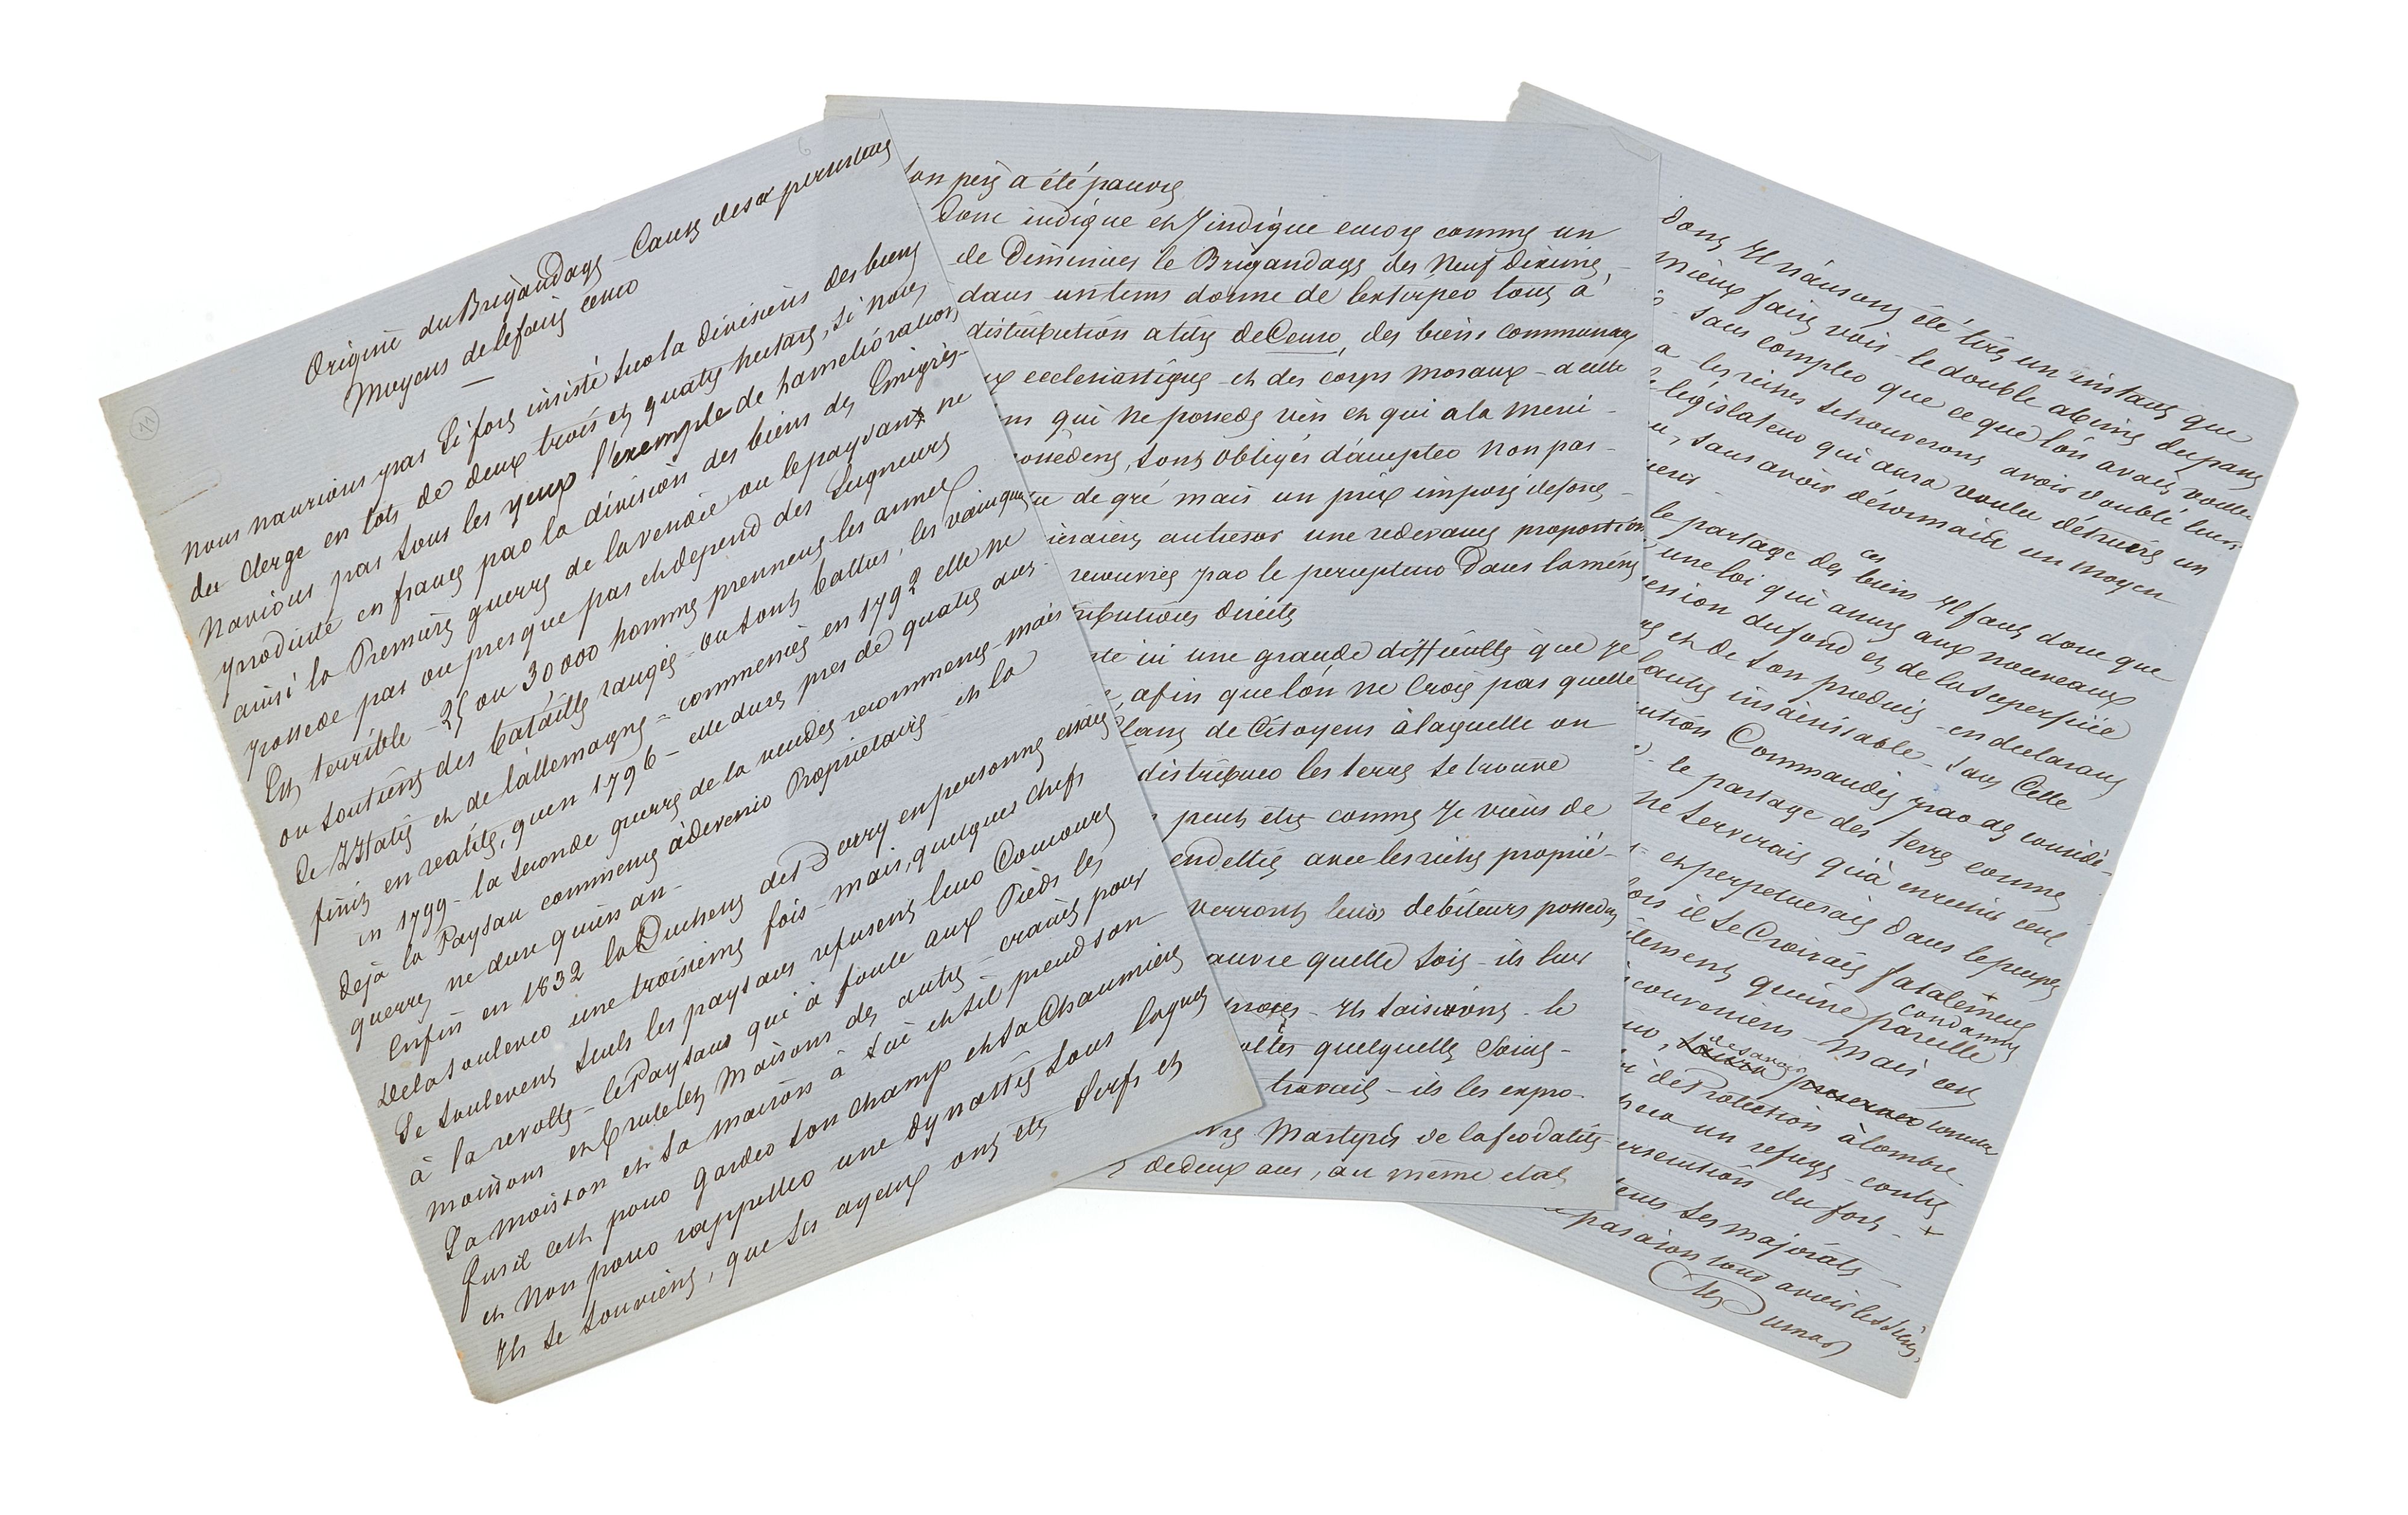 Origine du Brigandage – Cause de sa persistence
Moyens de le faire cesser
Nous n'aurions pas si fort insisté sur la divisions des biens
du clergé en lots de deux trois et quatre hectares, si nous
n'avions pas sous les yeux l'exemple de l'amelioration
produite en france par la division des biens des Emigrès –
ainsi la Premiere guerre de la vendée ou le paysant ne
possede pas ou presque pas et depend des Seigneurs
Est terrible – 25 ou 30 000 hommes prennent les armes
ou soutiens des batailles rangés – ou sont battus, les vainqueurs
de l'Italie et de l'allemagne – commencée en 1792 elle ne
finit en realité, qu'en 1796 – elle dure pres de quatre ans –
en 1799 – la seconde guerre de la vendée recommence – mais
deja le Paysan commence à devenir Propriétaire – et la
guerre ne dure qu'un an –
Enfin en 1832 la Duchesse de Berry en personne essaie
de la soulever une troisieme fois – mais, quelques chefs
se soulevent seuls les paysans refusent leur Concours
à la revolte – le Paysans qui à foule aux Pieds les
moissons et brulé les maisons des autres – craint pour
sa moisson et sa maison à lui et s'il prend son
fusil c'est pour garder son champ et sa Chaumière
et Non pour rappeller une dynastie sous laquelle
Il se souvient, que ses ayeux ont été Serfs et
son père a été pauvre
donc indiqué et J'indique encore comme un
de Diminuer le Brigandage des Neuf dixième,
dans un tems donné de l'extirper tous à
distribution a titre de Cens, des biens communaux
ecclesiastique – et des corps moraux – a cette
qui ne possede rien et qui a la meri –
possedent, sont obligés d'accepter non pas –
de gré mais un prix imposé de force –
au tresor une redevance proportion
recouvrée par le percepteur dans la même
tributions directs
ici une grande difficulté que je
, afin que l'on ne croie pas quelle
de Citoyens à laquelle on
distribuer les terres se trouve
peut être comme Je viens de
endettée avec les riches proprié –
verront leurs debiteurs posseder
quelle soit – ils leur
– Ils saisiront – le
quelquelle Soint –
travail – ils les expro –
Martyrs de la feodalité –
de deux ans, au même etat
dont Il n'auront été tiré un instant que
mieux faire voir – le double abime du passé
sans compter que ce que l'on avait voulu
a – les riches se trouveront avoir doublé leurs
législateur qui aura voulu détruire un
, sans avoir désormais un moyen
le partage des ces biens Il faut donc que
une loi qui assure aux nouveaux
du fond et de la Superficie
et de son produit – en declarant
insaisissable – sans Cette
Commandée par des considé –
– le partage des terres comme
ne serverait qu'à enrichir ceux
et perpetuerait dans le peuple
il se Croirait fatalement condamné
qu'une pareille
– Mais en
, desavoir preserver comme
de Protection à l'ombre
un refuge – contre
du fort –
ses majorats –
pas aion tour avoir les siens,
Alex Dumas